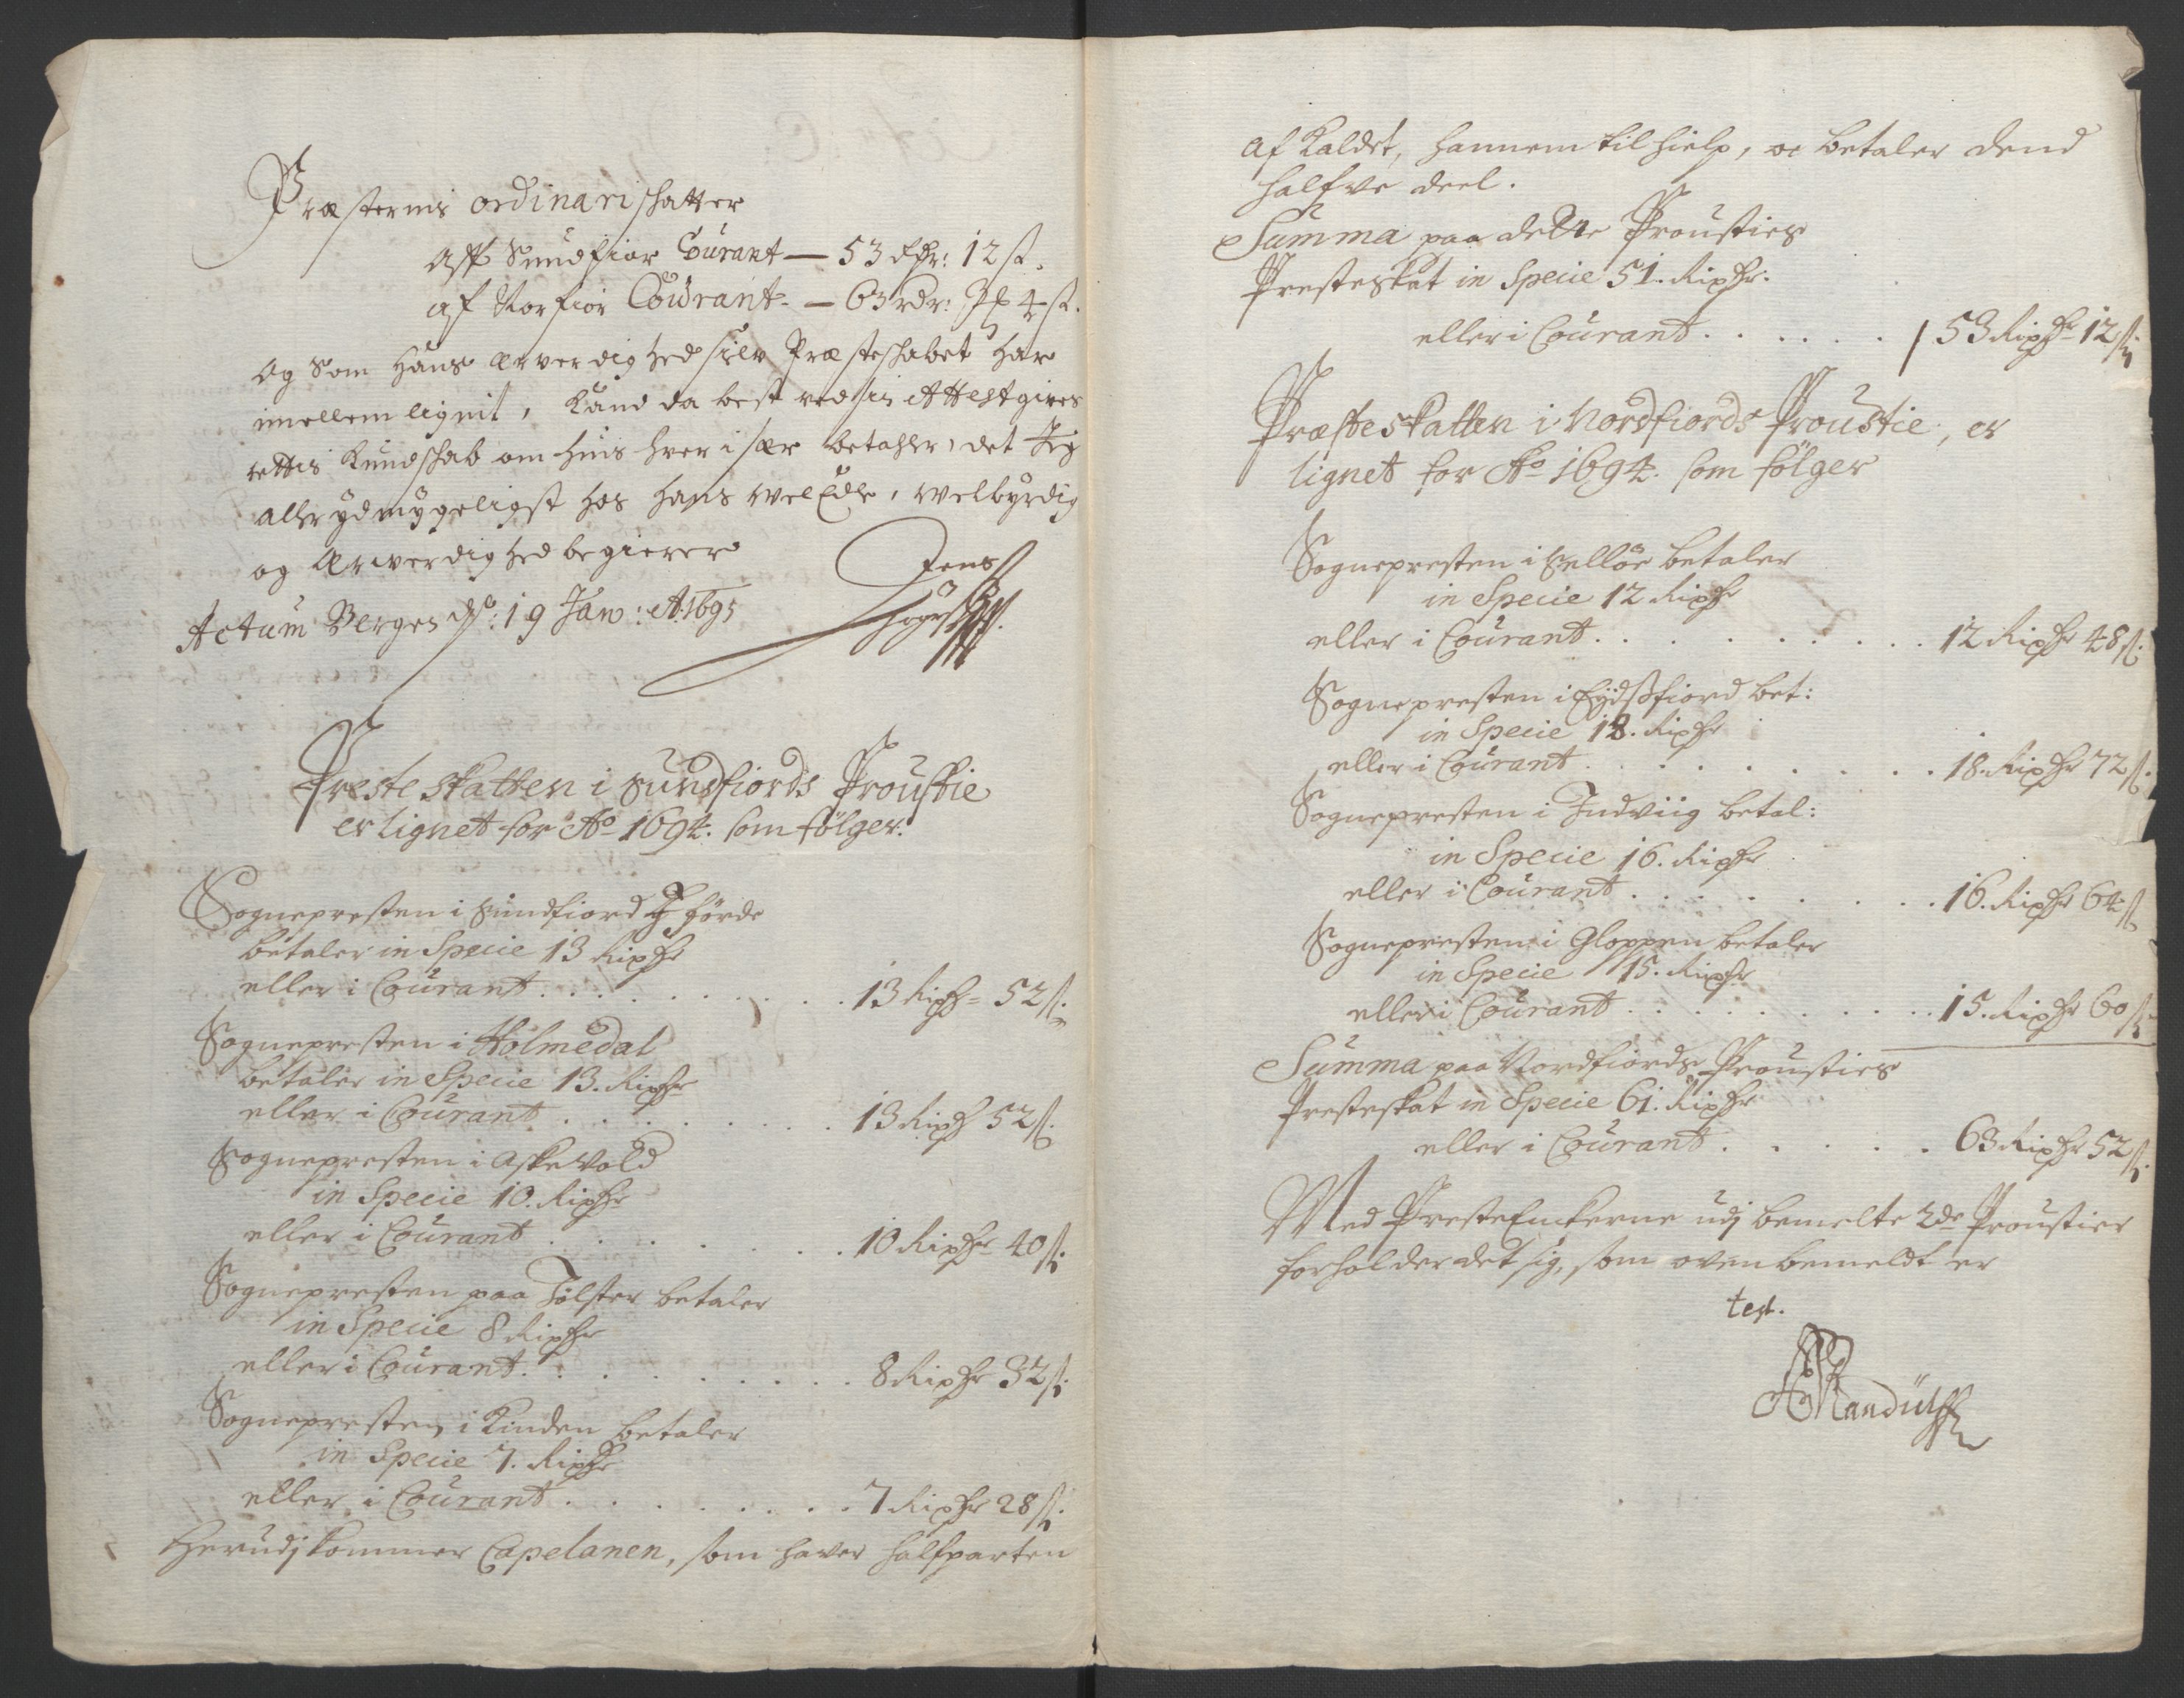 Præsternis ordinari shatter
aff Sundfior Courant — 53 rdr: 12 s.
af Norfior Courant — 63 rdr: 4 s.
og som hans ærverdighed selv Præsteskabet har
imellem lignit, kand da best ved sin Attest gives
rettis kundskab om huis hver især betaler, det Jeg
aller ydmygeligst hos hans Wel Edle, welbyrdig
og ærverdighed begierer
Jens
Actum Bergen d: 19 Jan: A: 1695
Preste Skatten i Sundfiords Proustie
er lignet for Ao 1694. som fölger.
Sognepresten i Sundfiord förde
betaler in Specie 13 Rixdr
eller i Courant . . . . . . . . . 13 Rixdr 52 s.
Sognepresten i Holmedal
betaler in Specie 13. Rixdr
eller i Courant . . . . . . . . 13 Rixdr 52 s.
Sognepresten i Askevold
in Specie 10. Rixdr
eller i Courant . . . . . . . 10 Rixdr 40 s.
Sognepresten paa Jölster betaler
in Specie 8 Rixdr
eller i Courant. . . . . . . . . 8 Rixdr 32 s.
Sognepresten i Kinden betaler
in Specie 7. Rixdr
eller i Courant . . . . . . . . 7 Rixdr 28 s.
Herudj kommer Capelanen, som haver halfparten
af Kaldet, hannem til hielp, oc betaler dend
halfve deel.
Summa paa dette Prousties
Presteskat in Specie 51. Rixdr.
eller i Courant . . . . . . 53 Rixdr 12 s.
Præsteskatten i Nordfiords Proustie, er
lignet for Ao 1694. som fölger
Sognepresten i Selløe betaler
in Specie 12 Rixdr
eller i Courant . . . . . . . . . 12 Rixdr 48 s.
Sognepresten i Eydsfiord bet:
in Specie 18. Rixdr
eller i Courant . . . . . . . . . 18. Rixdr 72 s.
Sognepresten i Indviig betal:
in Specie 16. Rixdr
eller i Courant . . . . . . . . 16. Rixdr 64 s.
Sognepresten i Gloppen betaler
in Specie 15. Rixdr
eller i Courant . . . . . . . . . 15. Rixdr 60 s.
Summa paa Nordfiords Prousties
Presteskat in Specie 61. Rixdr
eller i Courant . . . . . 63 Rixdr 52 s.
Med PresteEnkerne udj bemelte 2de Proustier
forholder det sig, som ovenbemeldt er
test.
Randulff